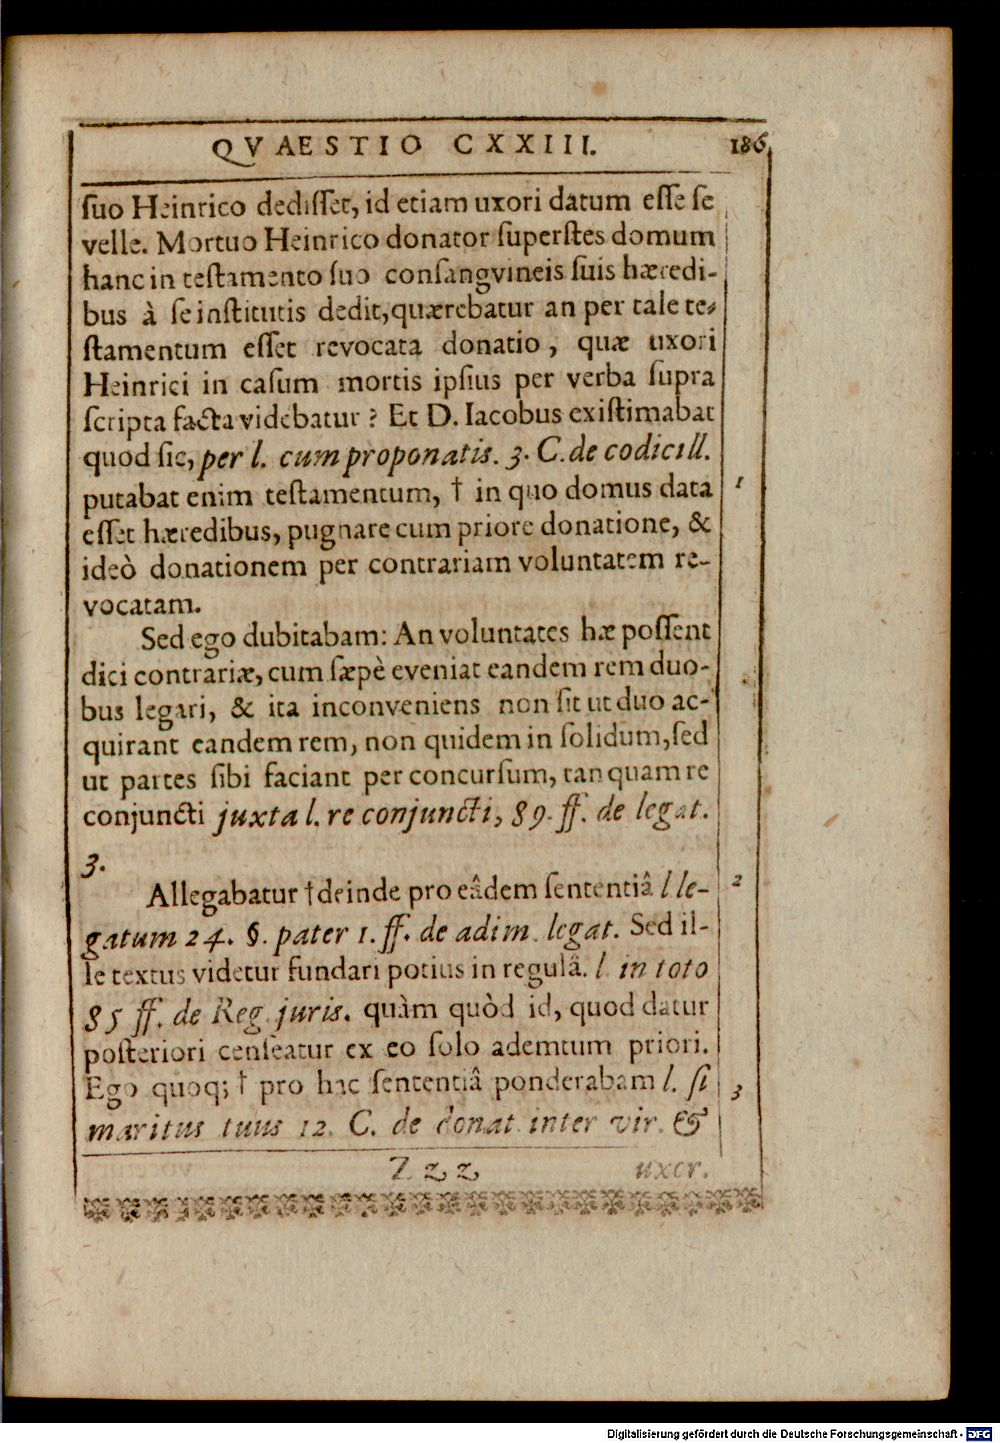 QVAESTIO CXXIII. 186
ſuo Heinrico dediſſet, id etiam uxori datum eſſe ſe
velle. Mortuo Heinrico donator ſuperſtes domum
hanc in teſtamento ſuo conſangvineis ſuis hæredi-
bus à ſe inſtitutis dedit, quærebatur an per tale te-
ſtamentum eſſet revocata donatio, quæ uxori
Heinrici in caſum mortis ipſius per verba ſupra
ſcripta facta videbatur? Et D. Iacobus exiſtimabat
quod ſic, per l. cum proponatis. 3. C. de codicill.
putabat enim teſtamentum, † in quo domus data 1
eſſet hæredibus, pugnare cum priore donatione, &
ideò donationem per contrariam voluntatem re-
vocatam.
Sed ego dubitabam: An voluntates hæ poſſent
dici contrariæ, cum ſæpè eveniat eandem rem duo-
bus legari, & ita inconveniens non ſit ut duo ac-
quirant eandem rem, non quidem in ſolidum, ſed
ut partes ſibi faciant per concurſum, tanquam re
conjuncti juxta l. re conjuncti, 89. ff. de legat.
3.
Allegabatur † deinde pro eâdem ſententiâ l le- 2
gatum 24. §. pater 1. ff. de adim. legat. Sed il-
le textus videtur fundari potius in regulâ. l. in toto
85 ff. de Reg. juris. quàm quòd id, quod datur
poſteriori cenſeatur ex eo ſolo ademtum priori.
Ego quoq; † pro hac ſententiâ ponderabam l. ſi 3
maritus tuus 12. C. de donat. inter vir. &
Zzz uxor.
Digitalisierung gefördert durch die Deutsche Forschungsgemeinschaft - DFG